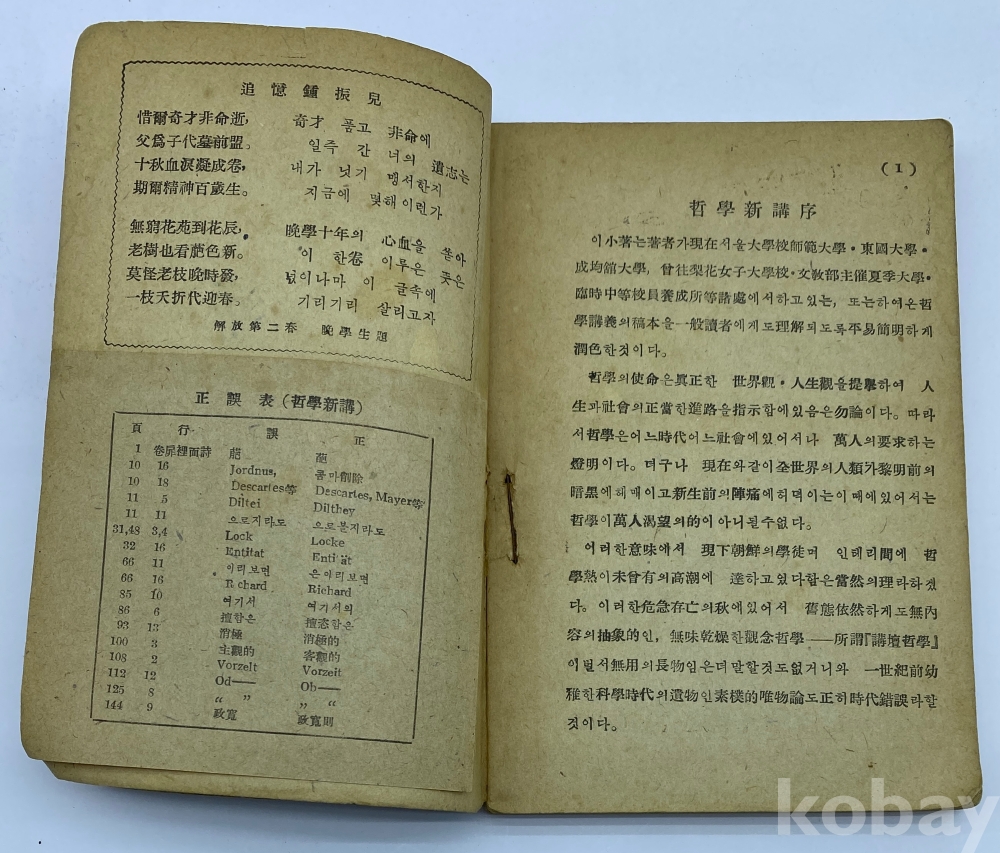 追憶鍾振兒
惜爾奇才非命逝,
父爲子代墓前盟。
十秋血淚凝成卷,
期爾精神百歲生。
無窮花苑到花辰,
老樹也看葩色新。
莫怪老枝晩時發,
一枝夭折代迎春。
奇才 품고 非命에
일즉 간 너의 遺志는
내가 닛기 맹서한지
지금에 몇해 이런가
晩學十年의 心血을 쏟아
이 한卷 이루은 뜻은
넋이나마 이 글속에
기리기리 살리고자
解放第二春 晩學生題
正誤表(哲學新講)
頁 行 誤 正
1 卷扉裡面詩 葩 葩
10 16 Jordnus, 콤마削除
10 18 Descartes等 Descartes, Mayer等
11 5 Diltei Dilthey
11 11 으로지라도 으로볼지라도
31,48 3,4 Lock Locke
32 16 Entitat Entität
66 11 아리보면 은아리보면
66 16 Richard Richard
85 10 여기서 여기서의
86 6 擅함은 擅恣함은
93 13 消極 消極的
100 3 主觀的 客觀的
108 2 Vorzelt Vorzeit
112 12 Od—— Ob——
125 8 “ ” „ “
144 9 政寬 政寬則
(1)
哲學新講序
이小著는著者가現在서울大學校師範大學·東國大學·
成均舘大學, 曾往梨花女子大學校·文敎部主催夏季大學·
臨時中等校員養成所等諸處에서하고있는, 또는하여온哲
學講義의稿本을一般讀者에게도理解되도록平易簡明하게
潤色한것이다。
哲學의使命은眞正한 世界觀·人生觀을提擧하여 人
生과社會의正當한進路를指示함에있음은勿論이다。따라
서哲學은어느時代어느社會에있어서나 萬人의要求하는
燈明이다。더구나 現在와같이全世界의人類가黎明前의
暗黑에헤매이고新生前의陣痛에허덕이는이때에있어서는
哲學이萬人渴望의的이아니될수없다。
이러한意味에서 現下朝鮮의學徒며 인테리間에 哲
學熱이未曾有의高潮에 達하고있다함은當然의理라하겠
다。이러한危急存亡의秋에있어서 舊態依然하게도無內
容의抽象的인, 無味乾燥한觀念哲學——所謂『講壇哲學』
이벌서無用의長物임은더말할것도없거니와 一世紀前幼
稚한科學時代의遺物인素樸的唯物論도正히時代錯誤라할
것이다。
kobay